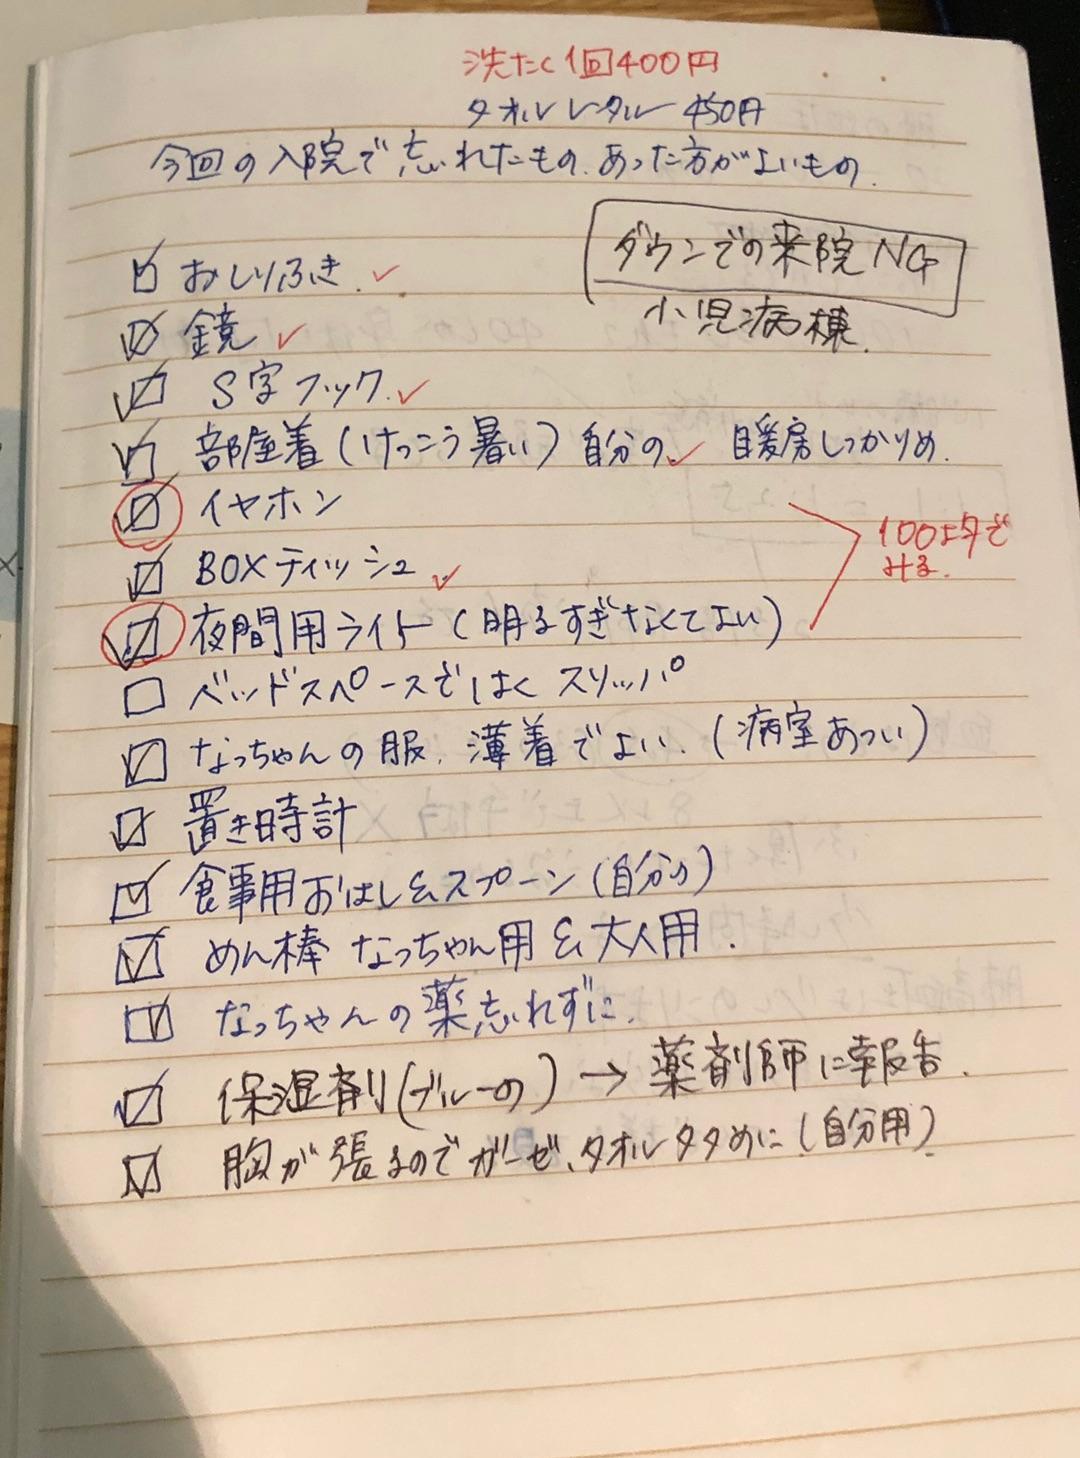 洗たく1回400円
タオルレンタル 450円
今回の入院で忘れたもの、あった方がよいもの.
ダウンでの来院NG
小児病棟.
おしりふき.
鏡
S字フック.
部屋着(けっこう暑い) 自分の 暖房しっかりめ.
イヤホン
100ヨタで
みる.
BOXティッシュ
夜間用ライト(明るすぎなくてよい)
ベッドスペースではく スリッパ
なっちゃんの服. 薄着でよい. (病室あつい)
置き時計
食事用おはし&スプーン(自分の)
めん棒 なっちゃん用 & 大人用.
なっちゃんの薬忘れずに.
保湿剤(ブルーの) → 薬剤師に報告.
胸が張るのでガーゼ、タオル多めに(自分用)